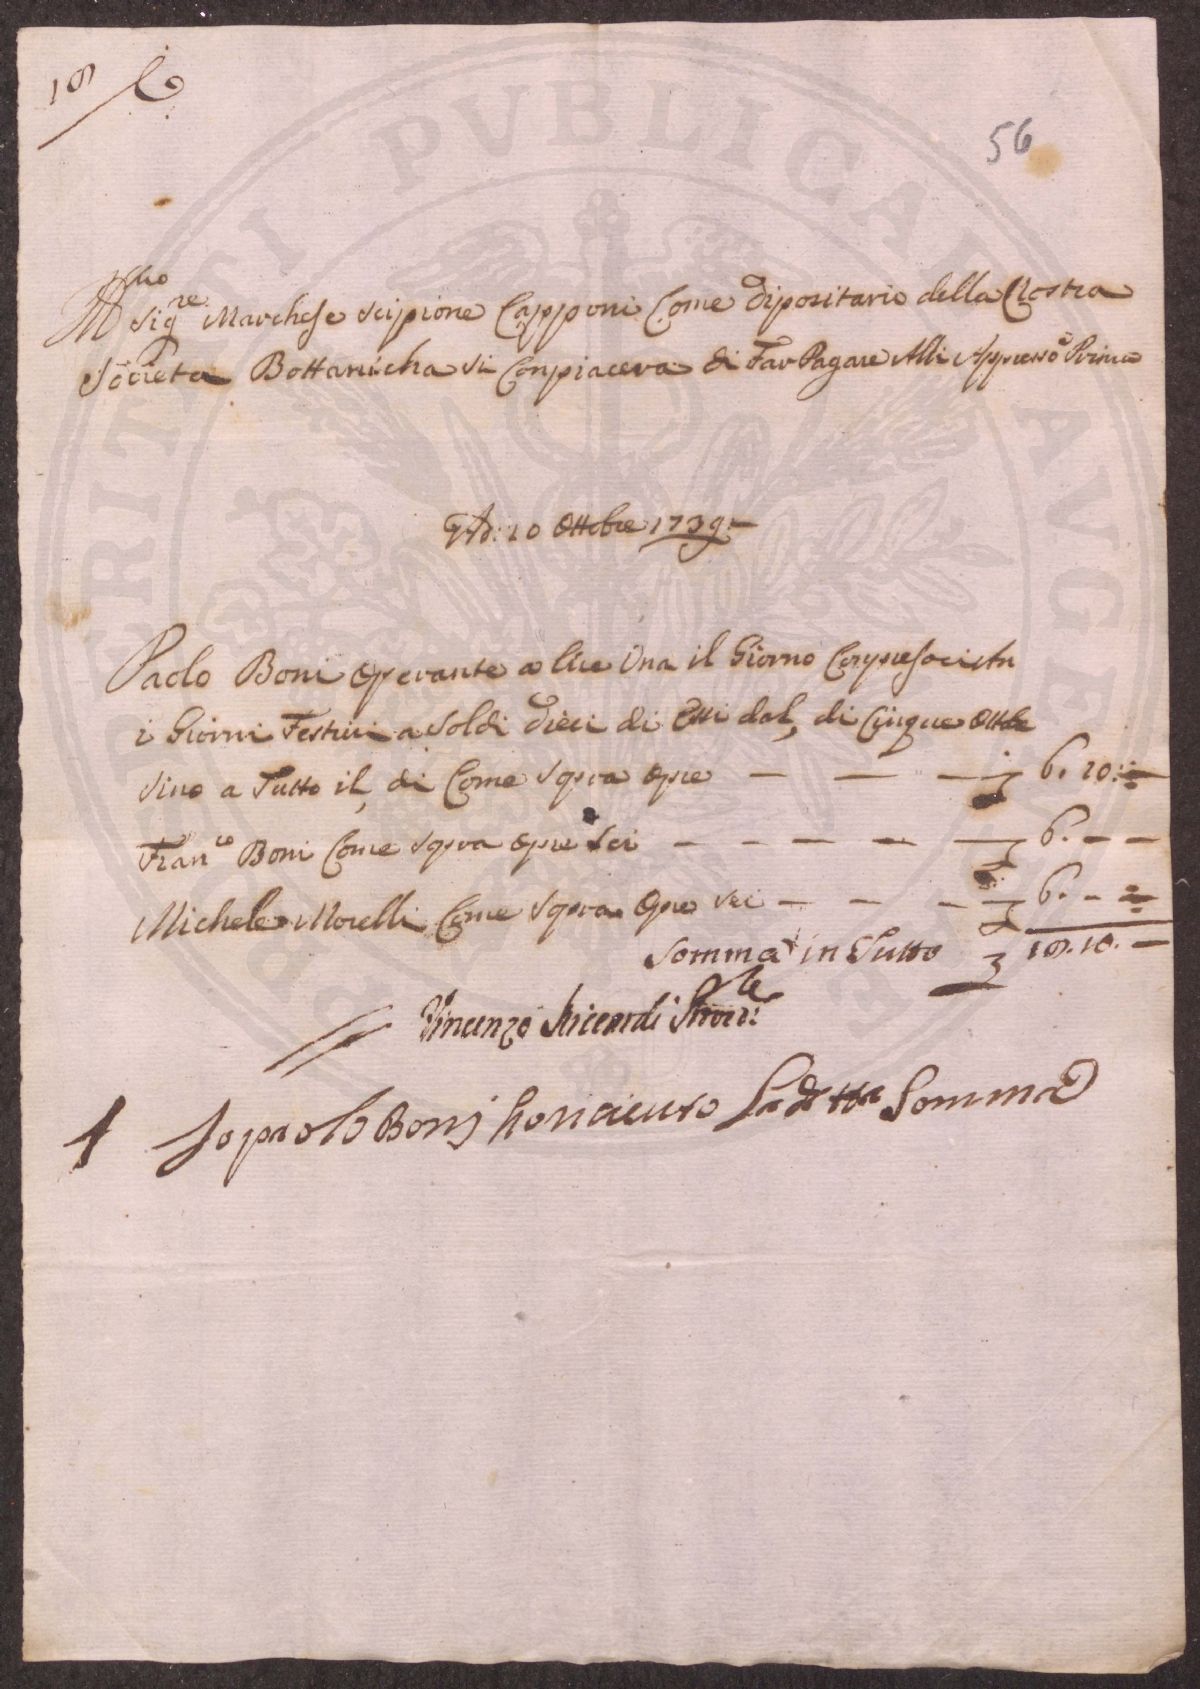 19
56
Ill.mo
Sig.re Marchese Scipione Capponi Come Dipositario della Nostra
Società Bottanicha si Conpiacera di Far Pagare Alli Appresso Prima
Ad: 10 Ottobre 1739:—
Paolo Boni Operante a lire Una il Giorno Conpresoci
i Giorni Festivi a Soldi Dieci di Essi dal, di Cinque Ottbe
Sino a Tutto il, di Come Sopra Opre — — — 6. 10:—
Fran.co Boni Come Sopra Opre Sei — — — — — 6. — —
Michele Morelli Come Sopra Opre Sei — — — 6. — —
Somma in Tutto 18. 10. —
Vincenzo Riccardi
Io paolo Boni ho riceuto La detta Somma
PUBLICAE